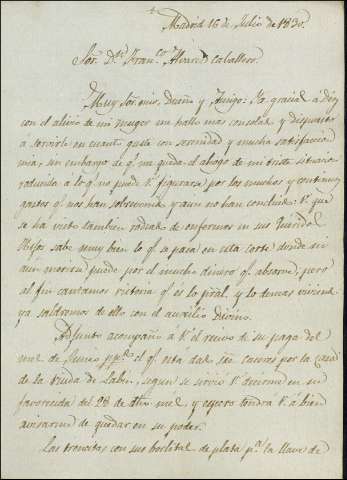 Madrid 16 de Julio de 1830.
Sor. Dn. Franco. Alvarez Caballero.
Muy Sor. mio, Dueño y Amigo: Ya gracias a Dios
con el alivio de mi muger me hallo mas consolado y dispuesto
á servirle en cuanto guste con serenidad y mucha satisfaccion
mia, sin embargo de q. me queda el ahogo de mi triste situacion
reducida a lo q. no puede V. figurarse por los muchos y continuos
gastos q. nos han sobrevenido y aun no han concluido. V. que
se ha visto tambien rodeado de enfermos en sus
Hijos sabe muy bien lo q. se pasa en esta corte donde ni
aun morirse puede por el mucho dinero q. absorve, pero
al fin cantamos victoria q. es lo pral. y lo demas viviendo
ya saldremos de ello con el auxilio Divino.
Adjunto acompaño á V. el recivo de su paga del
mes de Junio ppdo. el q. esta dado sin por la
de la Viuda de segun se sirvió V. decirme en su
favorecida del 28 de dho. mes, y espero tendrá V. á bien
avisarme de quedar en su poder.
Las trencitas con sus borlitas de plata pa. la llave de